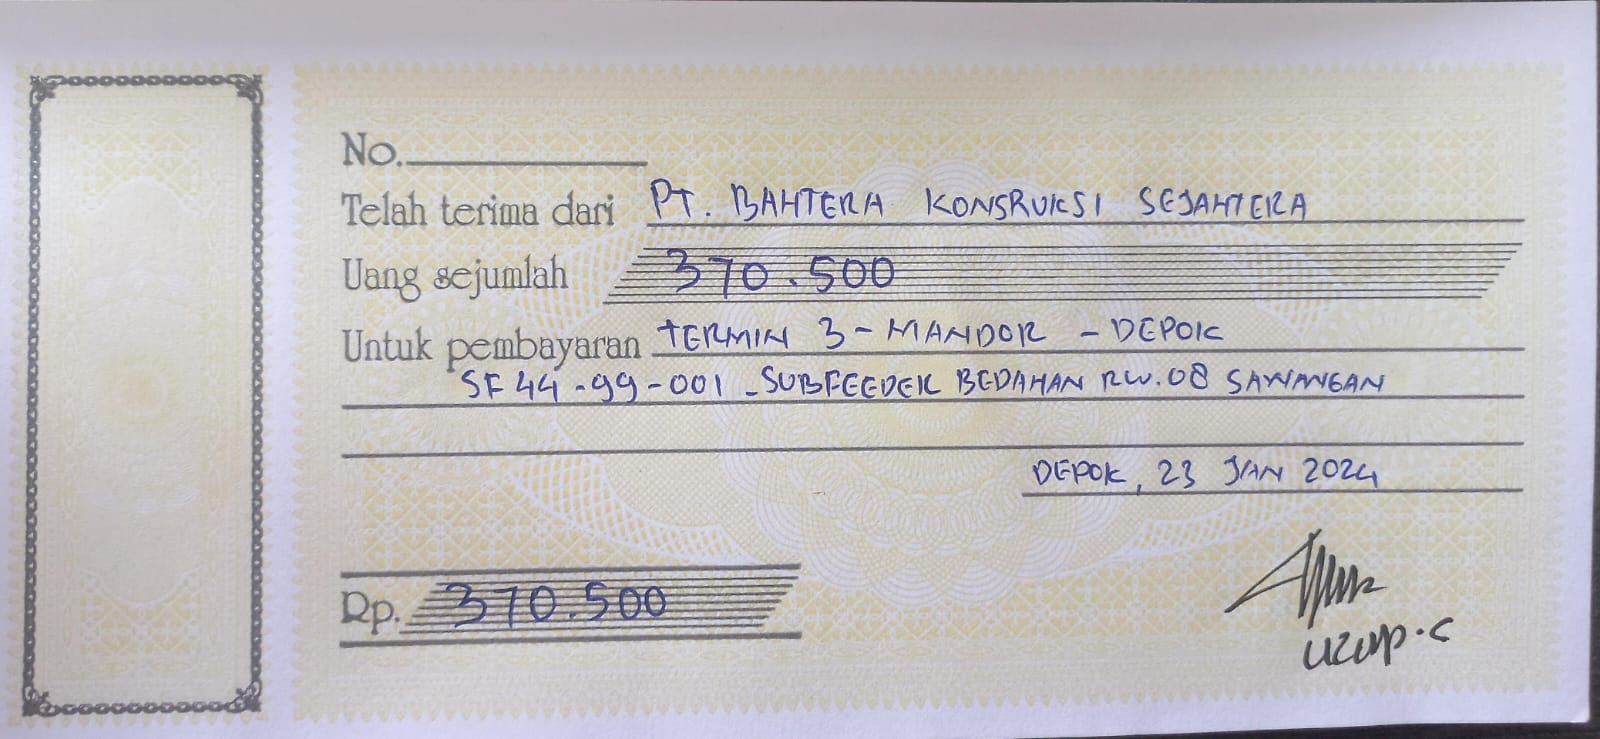 No.
Telah terima dari PT. BAHTERA KONSRUKSI SEJAHTERA
Uang sejumlah 370.500
Untuk pembayaran TERMIN 3 - MANDOR - DEPOK
SF 44 - 99 - 001 - SUBFEEDER BEDAHAN RW. 08 SAWANGAN
DEPOK, 23 JAN 2024
Rp. 370.500